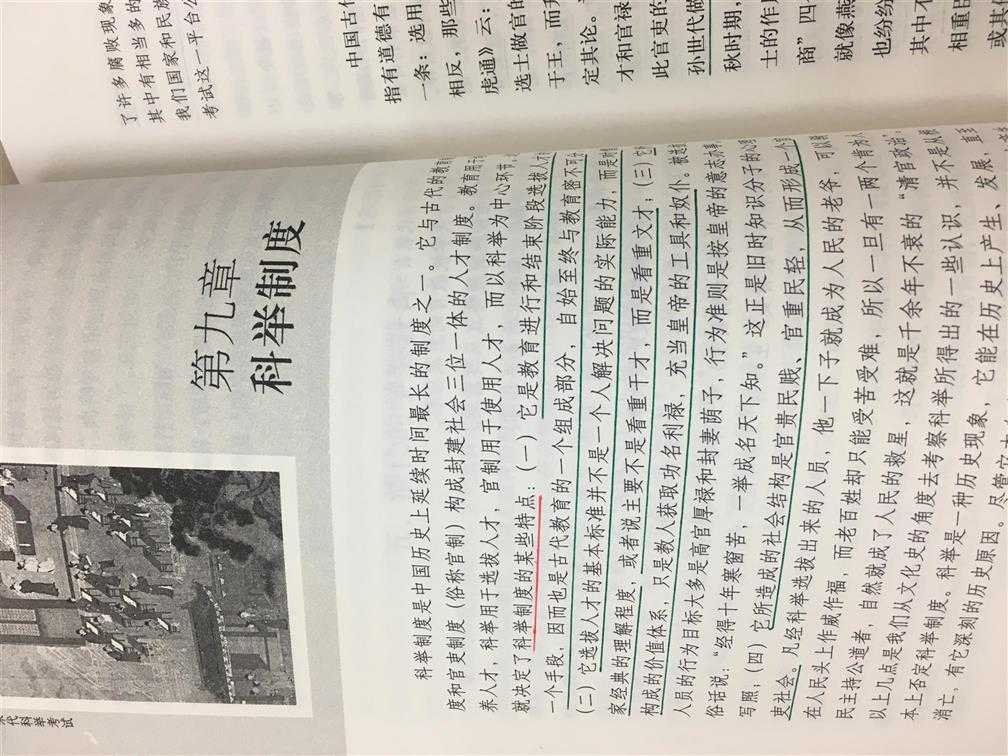 第九章
科举制度
代科举考试
科举制度是中国历史上延续时间最长的制度之一。它与古代的教育
度和官吏制度（俗称官制）构成封建社会三位一体的人才制度。教育用于
养人才，科举用于选拔人才，官制用于使用人才，而以科举为中心环节，
就决定了科举制度的某些特点：（一）它是教育进行和结束阶段选拔人才
一个手段，因而也是古代教育的一个组成部分，自始至终与教育密不可分
（二）它选拔人才的基本标准并不是一个人解决问题的实际能力，而是对
家经典的理解程度，或者说主要不是看重干才，而是看重文才；（三）它
构成的价值体系，只是教人获取功名利禄，充当皇帝的工具和奴仆。被选
人员的行为目标大多是高官厚禄和封妻荫子，行为准则是按皇帝的意志办事
俗话说：“经得十年寒窗苦，一举成名天下知。”这正是旧时知识分子的心理
写照；（四）它所造成的社会结构是官贵民贱、官重民轻，从而形成一个
吏社会。凡经科举选拔出来的人员，他一下子就成为人民的老爷，可以
在人民头上作威作福，而老百姓却只能受苦受难，所以一旦有一两个肯为人
民主持公道者，自然就成了人民的救星，这就是千余年不衰的“清官政治”
以上几点是我们从文化史的角度去考察科举所得出的一些认识，并不是从根
本上否定科举制度。科举是一种历史现象，它能在历史上产生、发展、直
消亡，有它深刻的历史原因。尽管
了许多腐败现象
其中有相当多的
我们国家和民族
考试这一平台公
中国古代
指有道德有
一条：选用
相反，那些
虎通》云：
选士做官的
于王，而升
定其论。
才和官禄
此官吏的
孙世代做
秋时期，
士的作用
商”四
就像燕
也纷纷
其中不
相重臣
或其